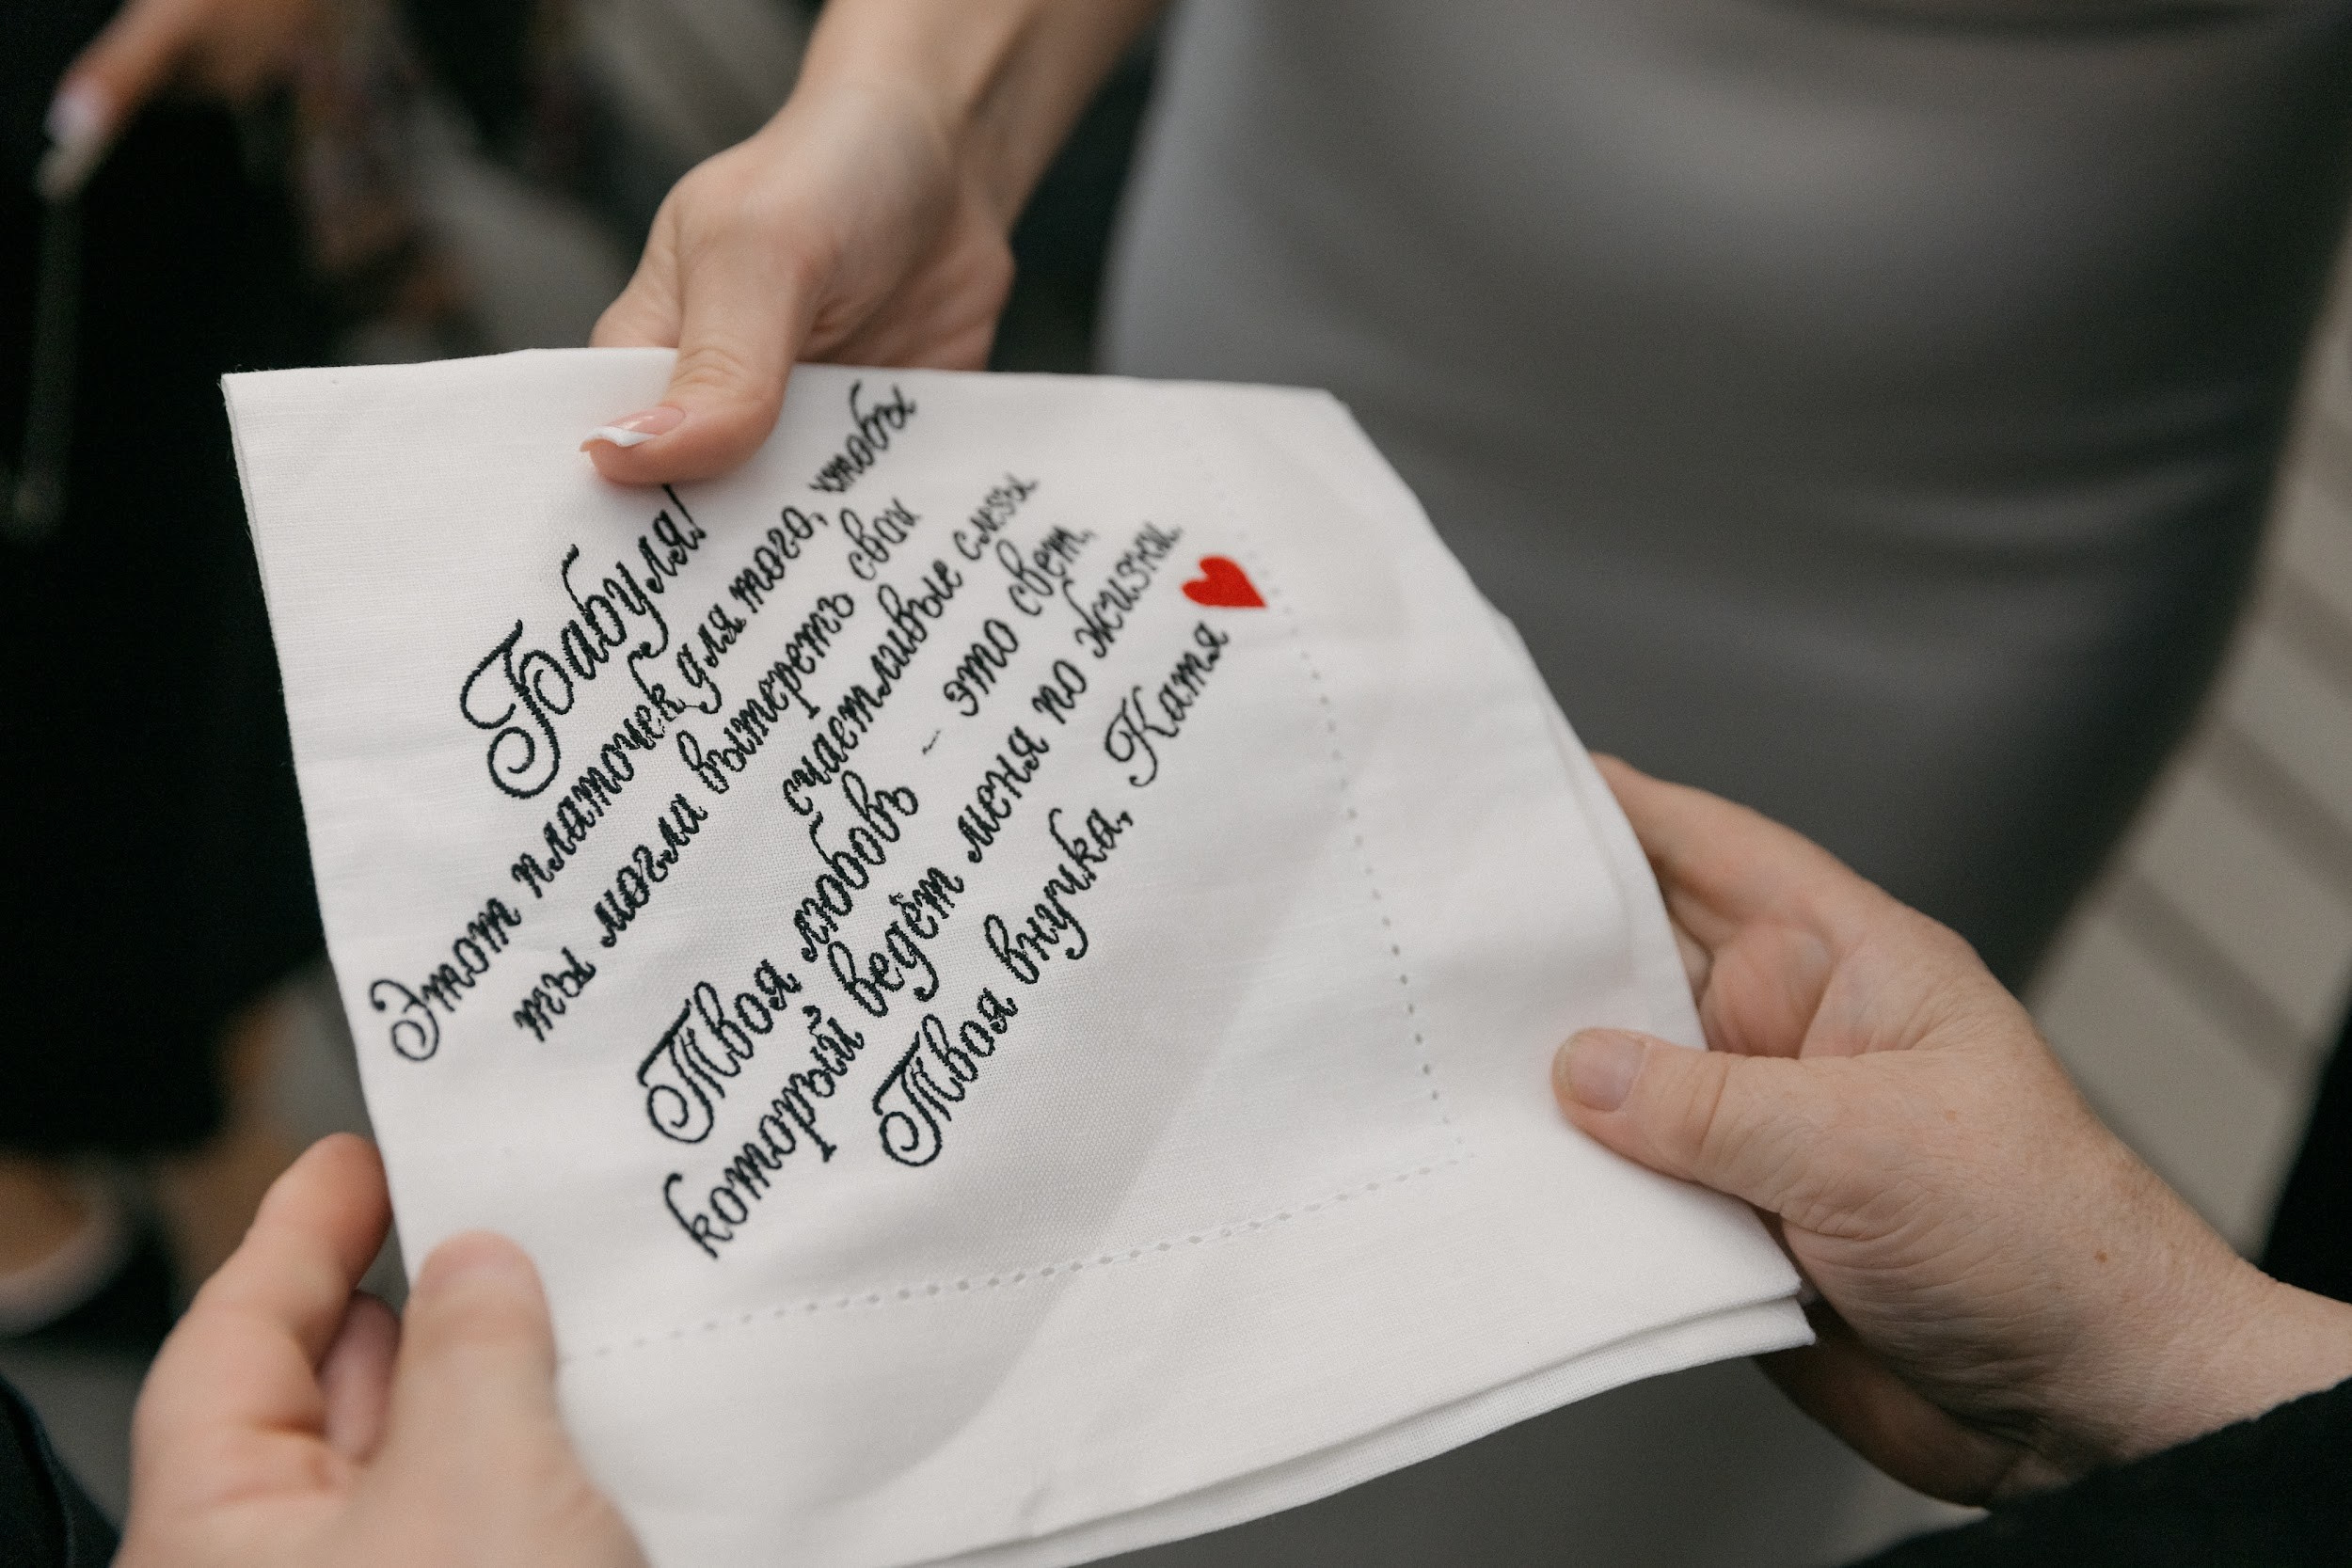 Бабуля!
Этот платочек для того, чтобы
ты могла вытереть свои
счастливые слезы
Твоя любовь - это свет,
который ведёт меня по жизни.
Твоя внучка, Катя